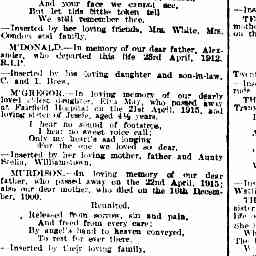 And your face we cannot see,
But let this little token tell
We still remember thee.
—Inserted by her loving friends, Mrs. White, Mrs.
Condon and family.
M'DONALD.—In memory of our dear father, Alex-
ander, who departed this life 23rd April, 1912.
R.I.P.
—Inserted by his loving daughter and son-in-law,
C. and E. Drew.
M'GREGOR.—In loving memory of our dearly
loved eldest daughter, Elsa May, who passed away
at Fairfield Hospital on the 21st April, 1915, and
loving sister of Jessie, aged 4½ years.
I hear no sound of footsteps,
I hear no sweet voice call;
Only my heart's sad longing
For the one we loved so dear.
—Inserted by her loving mother, father and Aunty
Stella, Williamstown.
MURDISON.—In loving memory of our dear
father, who passed away on the 22nd April, 1915;
also our dear mother, who died on the 16th Decem-
ber, 1900.
Reunited.
Released from sorrow, sin and pain,
And freed from every care;
By angel's hand to heaven conveyed,
To rest for ever there.
—Inserted by their loving family.